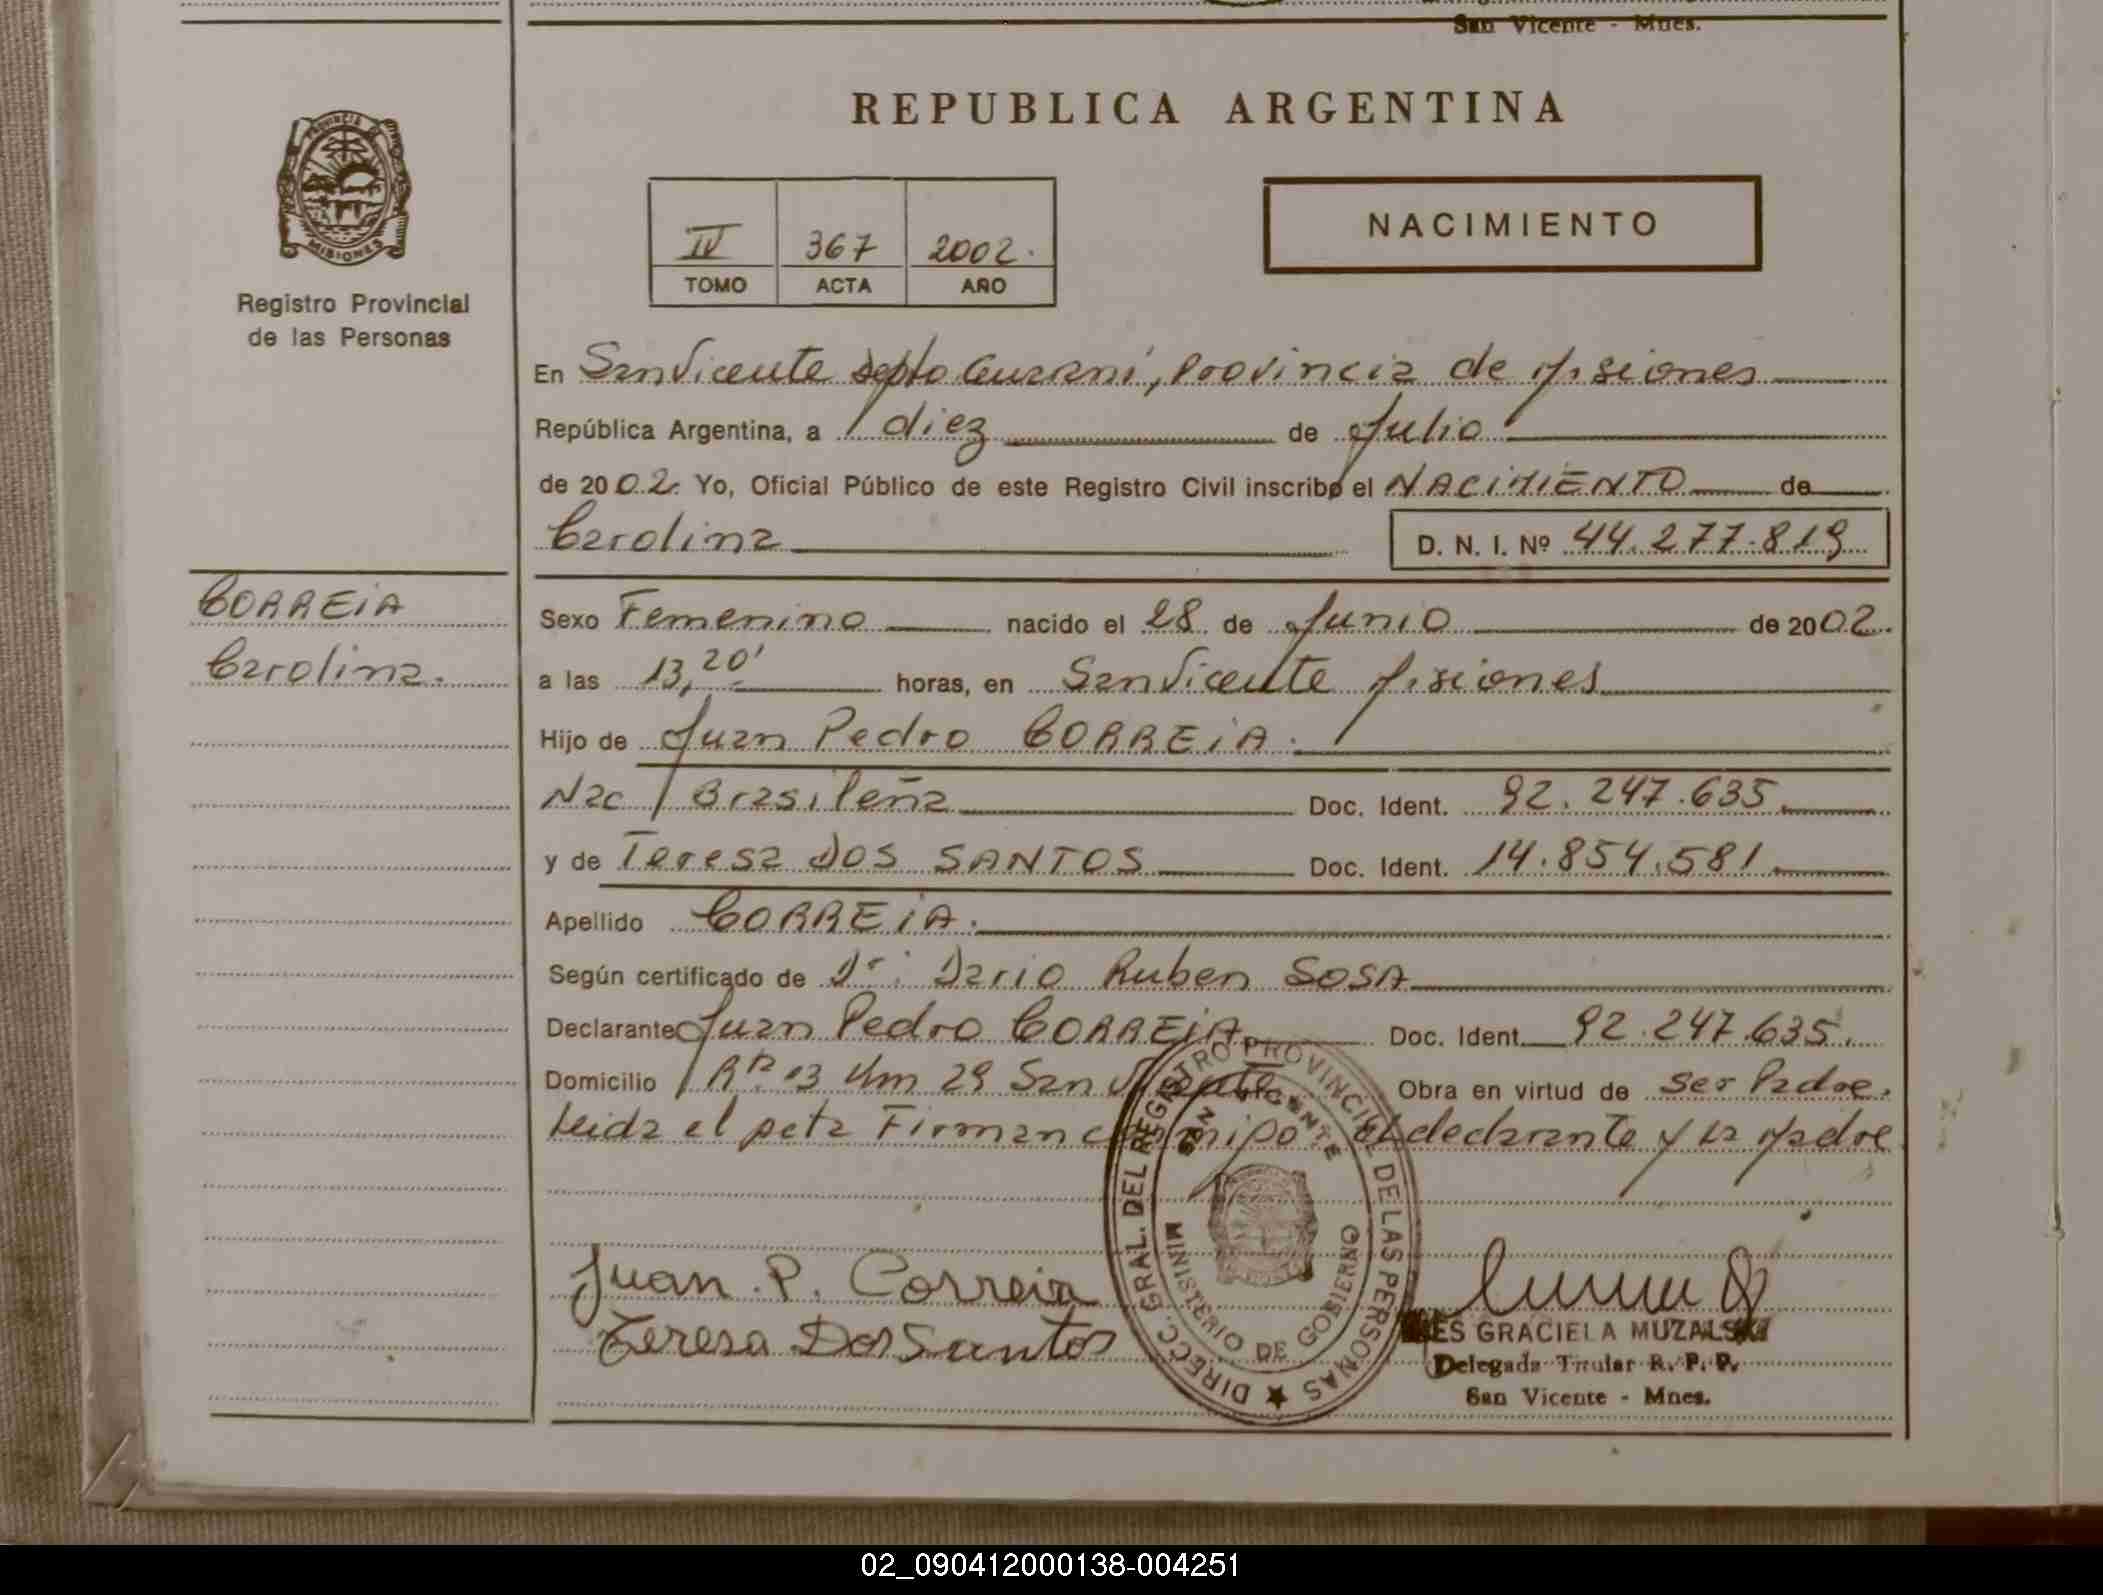 San Vicente - Mnes.
REPUBLICA ARGENTINA
PROVINCIA DE
MISIONES
Registro Provincial
de las Personas
IV 367 2002.
TOMO ACTA AÑO
NACIMIENTO
En San Vicente depto Guaraní, Provincia de Misiones
República Argentina, a diez de Julio
de 2002. Yo, Oficial Público de este Registro Civil inscribo el NACIMIENTO de
Carolina D. N. I. Nº 44.277.819
CORREIA
Carolina.
Sexo Femenino nacido el 28 de Junio de 2002.
a las 13,20' horas, en San Vicente Misiones
Hijo de Juan Pedro CORREIA.
Nac Brasileña Doc. Ident. 92.247.635.
y de Teresa DOS SANTOS Doc. Ident. 14.854.581.
Apellido CORREIA.
Según certificado de Dr: Dario Ruben SOSA
Declarante Juan Pedro CORREIA Doc. Ident. 92.247.635.
Domicilio 13 Km 29 San Vicente Obra en virtud de ser Padre.
Leida el acta Firman conmigo el declarante y la Madre
Juan. P. Correia
Teresa Dos Santos
DIRECC. GRAL. DEL REGISTRO PROVINCIAL DE LAS PERSONAS
SAN VICENTE
MINISTERIO DE GOBIERNO
GRACIELA MUZALSKI
Delegada Titular R. P. P.
San Vicente - Mnes.
02_090412000138-004251